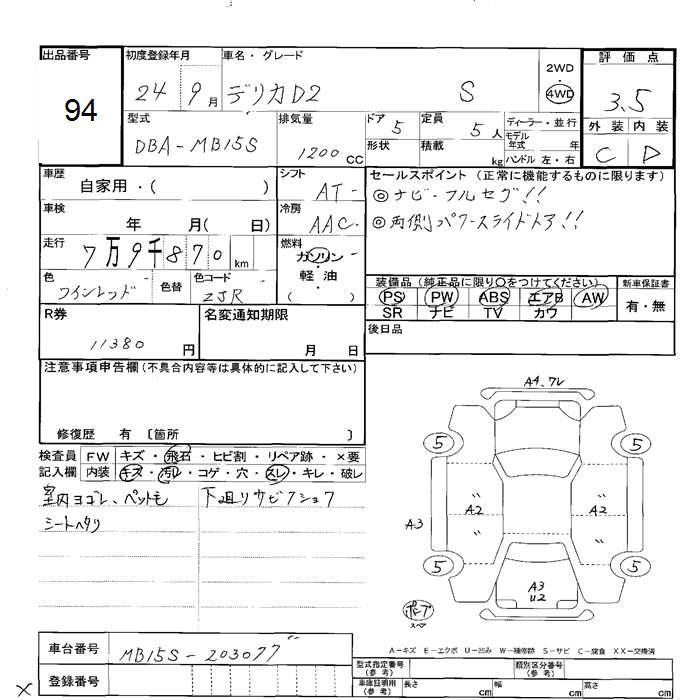 出品番号 94
初度登録年月 24 9月
車名・グレード デリカD2 S
2WD・4WD
評価点 3.5
外装 内装
C D
型式 DBA-MB15S
排気量 1200 CC
ドア 5
定員 5人
ディーラー・並行
形状
積載 kg
モデル年式 年
ハンドル 左・右
車歴 自家用・( )
シフト AT
セールスポイント (正常に機能するものに限ります)
◎ナビ・フルセグ!!
◎両側パワースライドドア!!
車検 年 月( 日)
冷房 AAC
走行 7万9千870km
燃料 ガソリン・軽油
( )
色 ワインレッド
色替
色コード ZJR
装備品 (純正品に限り○をつけてください)
PS PW ABS エアB AW
SR ナビ TV カワ
新車保証書 有・無
R券 11380 円
名変通知期限 月 日
後日品
注意事項申告欄 (不具合内容等は具体的に記入して下さい)
修復歴 有 〔箇所 〕
検査員記入欄
FW キズ・飛石・ヒビ割・リペア跡・×要
内装 キズ・汚レ・コゲ・穴・スレ・キレ・破レ
室内ヨゴレ、ペットモ 下廻リサビアショブ
シートヘタリ
A4、ワレ
5 5
A3 A2 A2
5 5
A3
U2
スペア
A-キズ E-エクボ U-凹み W-補修跡 S-サビ C-腐食 XX-交換済
車台番号 MB15S-203077
登録番号
型式指定番号(参考)
類別区分番号(参考)
車庫証明用(参考) 長さ cm 幅 cm 高さ cm
×